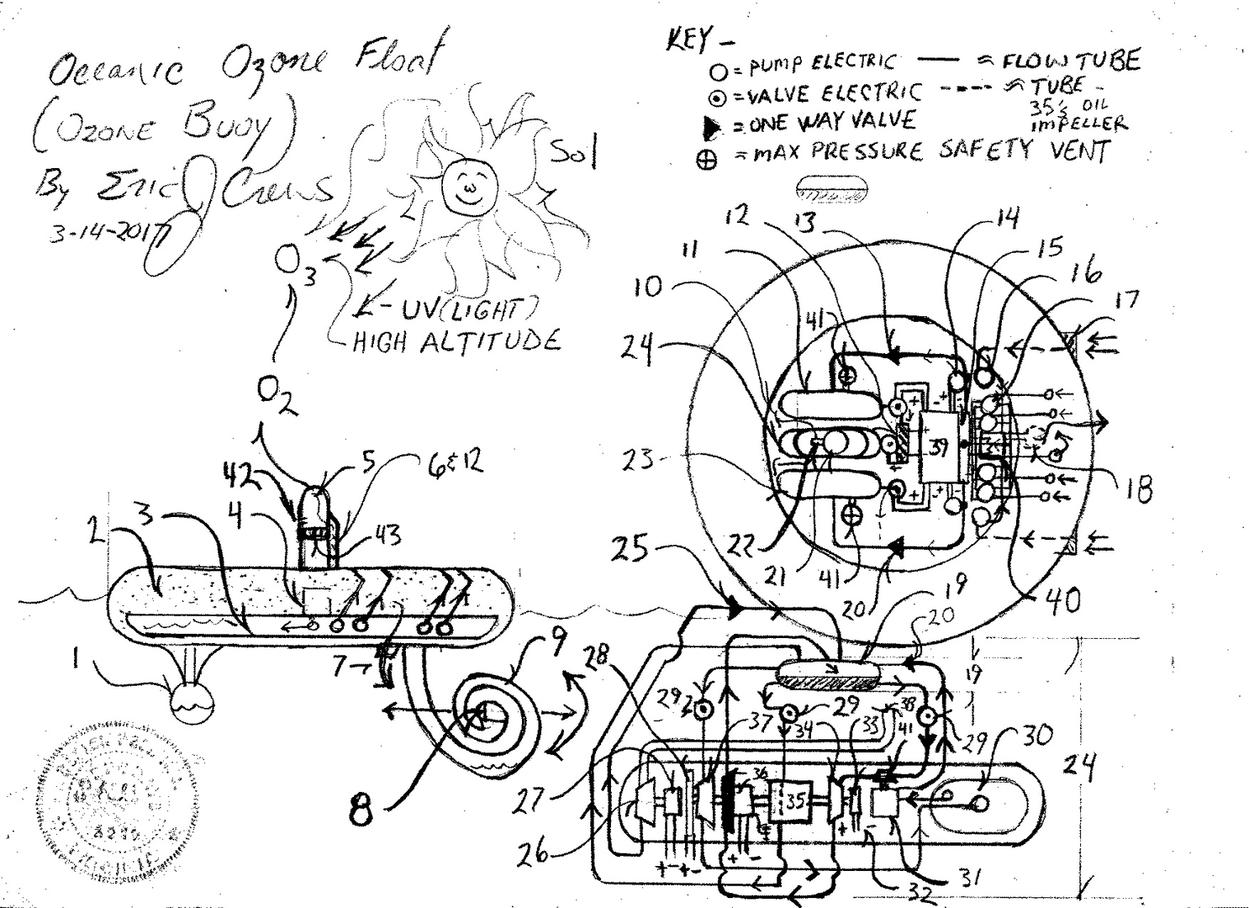 Oceanic Ozone Float
(Ozone Buoy)
By Eric J Crews
3-14-2017
Sol
O3
UV (LIGHT)
HIGH ALTITUDE
O2
KEY -
= PUMP ELECTRIC
= FLOW TUBE
= VALVE ELECTRIC
TUBE -
35's OIL
IMPELLER
= ONE WAY VALVE
= MAX PRESSURE SAFETY VENT
10
11
12
13
14
15
16
17
41
24
39
23
18
22
21
41
20
40
42
5
6&12
43
2
3
4
1
7
8
9
25
19
20
19
28
29
29
38
41
29
30
37
34
33
24
27
36
35
26
32
31
+ -
+ -
+ -
+ -